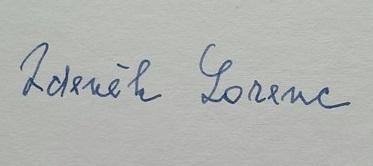 Zdeněk Lorenc